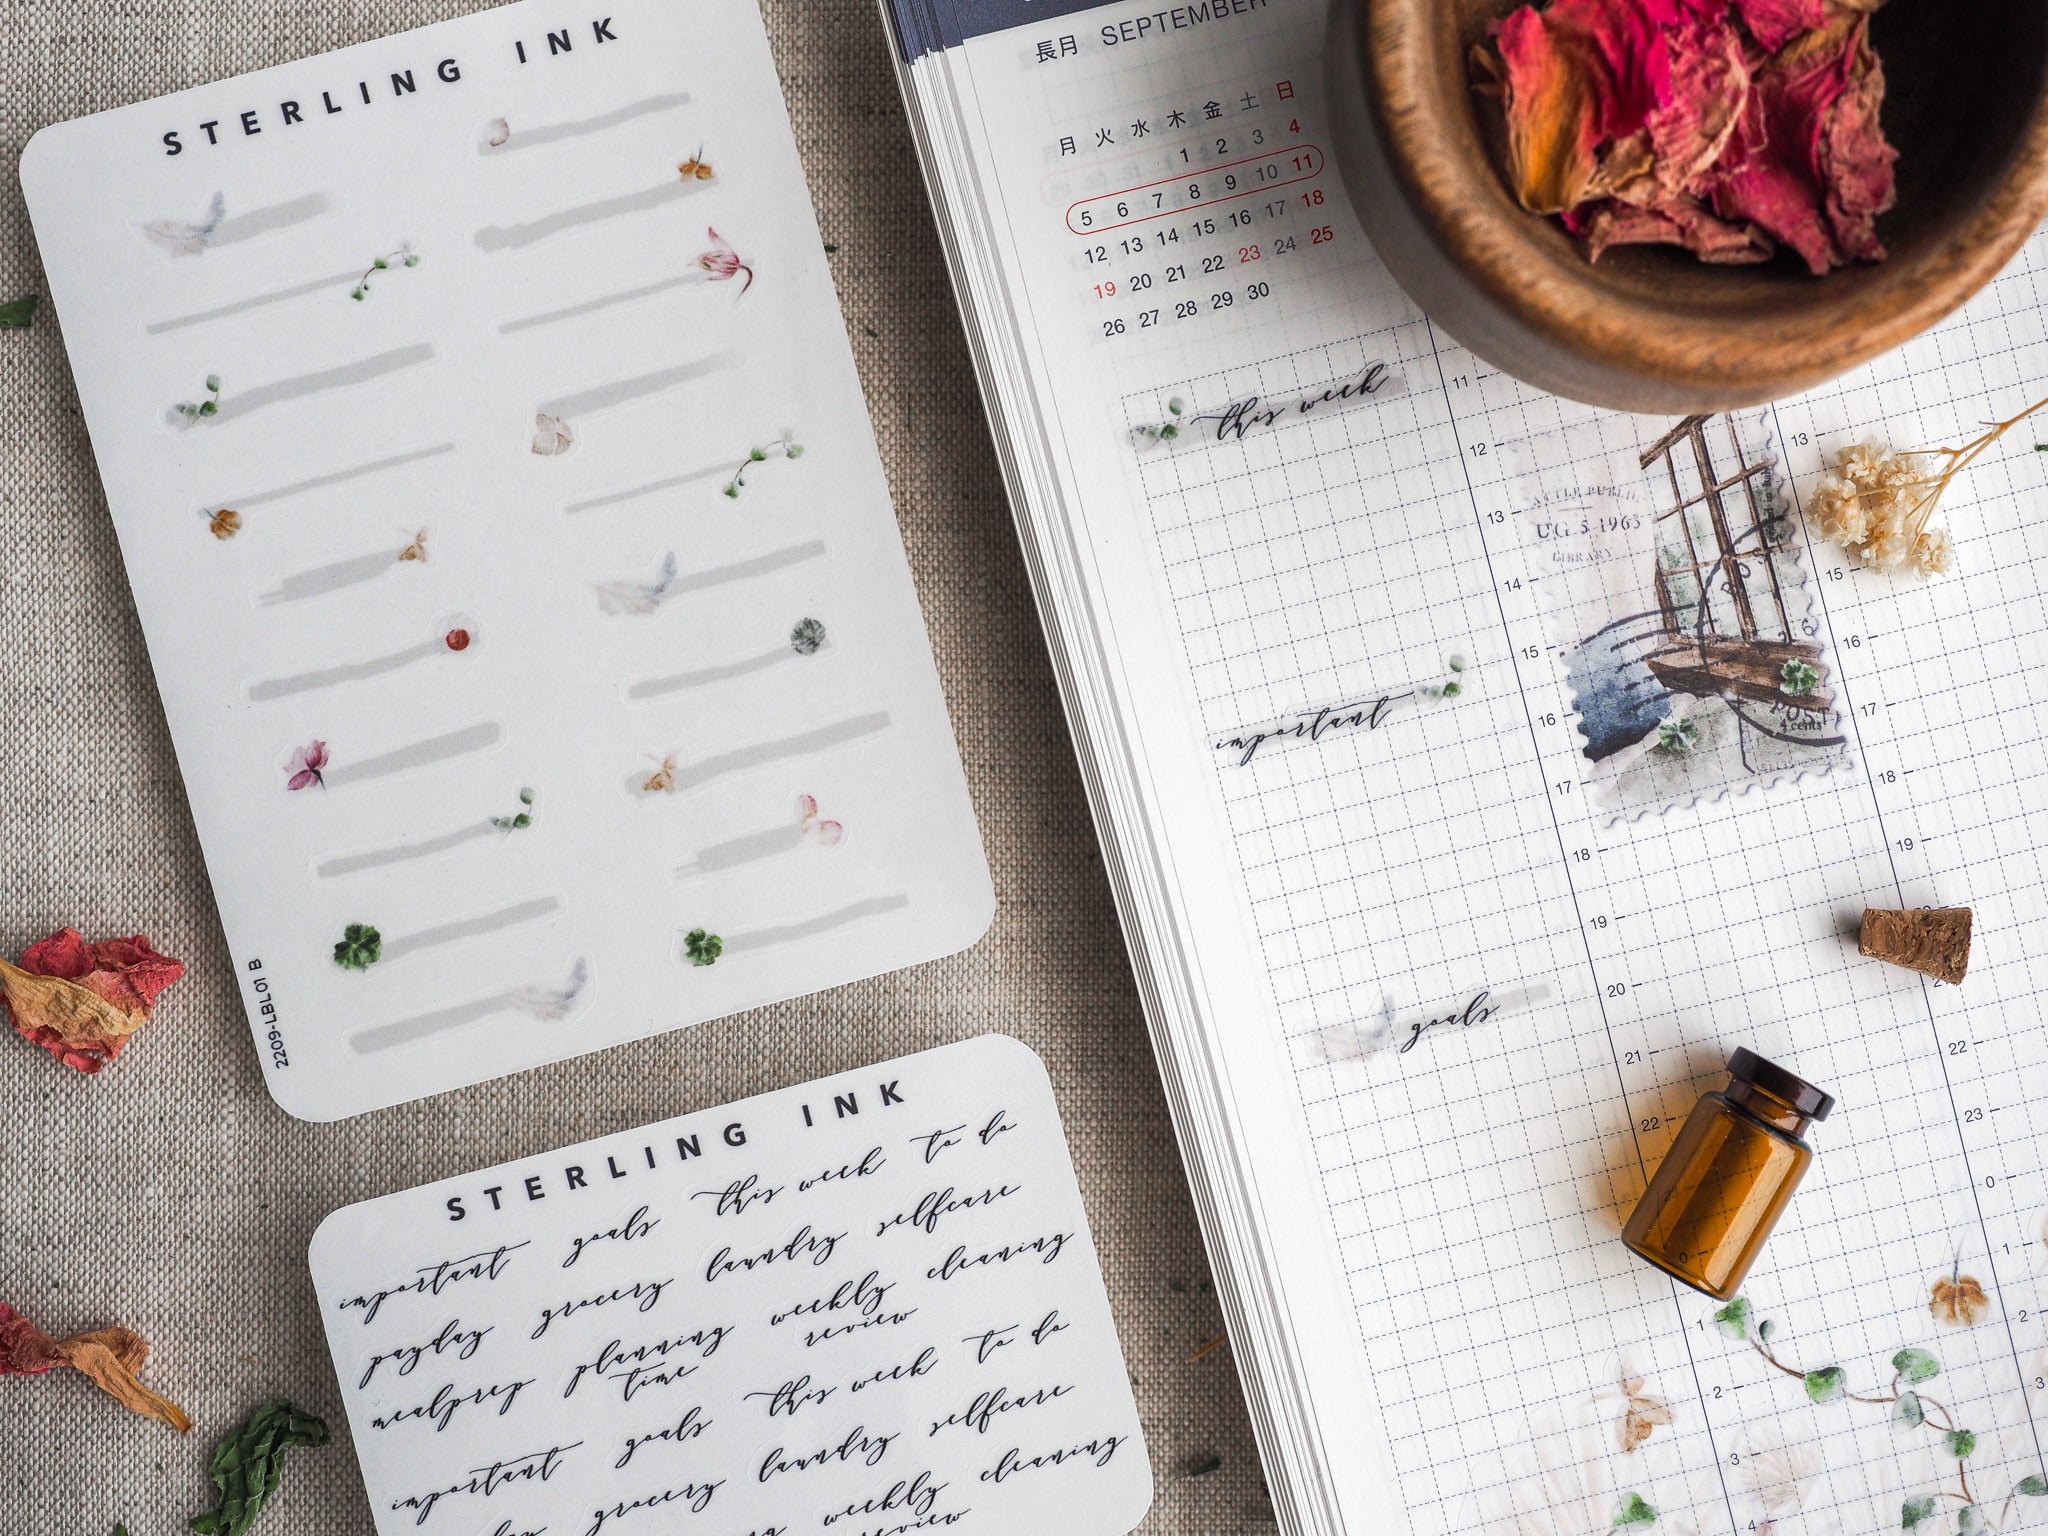 STERLING INK
2209-LBL01 B
STERLING INK
important goals this week to do
payday grocery laundry selfcare
mealprep planning time weekly review cleaning
important goals this week to do
grocery laundry selfcare
weekly review cleaning
長月 SEPTEMBER
月 火 水 木 金 土 日
1 2 3 4
5 6 7 8 9 10 11
12 13 14 15 16 17 18
19 20 21 22 23 24 25
26 27 28 29 30
this week
important
goals
11
12
13
14
15
16
17
18
19
20
21
22
0
1
2
3
4
UG 5 1965
LIBRARY
POST
4 cents
13
15
16
17
18
19
22
23
0
1
2
3